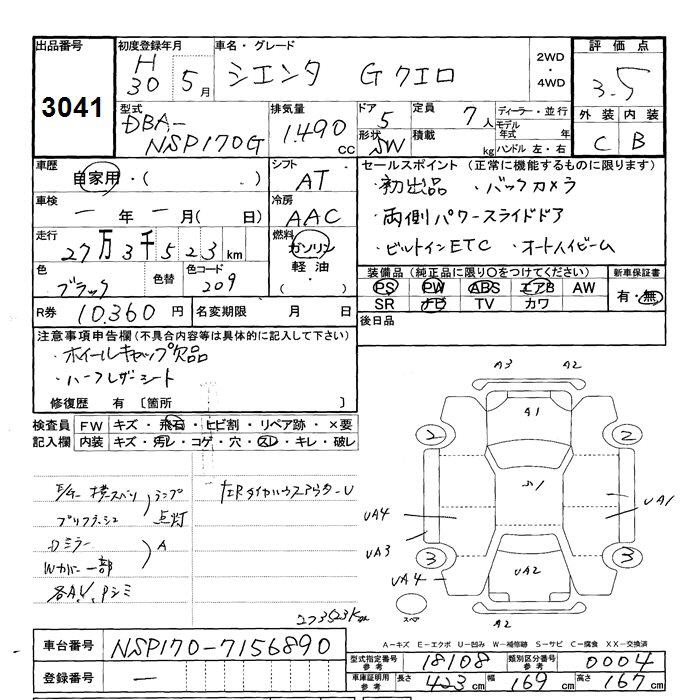 出品番号 3041
初度登録年月 H30 5月
車名・グレード シエンタ G クエロ
2WD・4WD
評価点 3.5
外装 C 内装 B
型式 DBA-NSP170G
排気量 1.490 CC
ドア 5 形状 SW
定員 7人 積載 kg
ディーラー・並行
モデル年式 年
ハンドル 左・右
車歴 自家用・( )
車検 ー年ー月( 日)
走行 27万3千523km
色 ブラック 色替 色コード 209
シフト AT
冷房 AAC
燃料 ガソリン 軽油・( )
セールスポイント (正常に機能するものに限ります)
・初出品 ・バックカメラ
・両側パワースライドドア
・ビルトインETC ・オートハイビーム
装備品 (純正品に限り○をつけてください)
PS PW ABS エアB AW
SR ナビ TV カワ
新車保証書 有・無
R券 10,360円 名変期限 月 日
後日品
注意事項申告欄 (不具合内容等は具体的に記入して下さい)
・ホイールキャップ欠品
・ハーフレザーシート
修復歴 有 [箇所 ]
検査員記入欄
FW キズ・飛石・ヒビ割・リペア跡・×要
内装 キズ・汚レ・コゲ・穴・スレ・キレ・破レ
横スベリ ランプ点灯
プリクラッシュ
Dミラー
Wカバー一部 A
各A、U、Pシミ
273523K
A3 A2
A1
2 2
UA4 UA1
UA3
3 3
UA4 UA2
スペア
A2
A-キズ E-エクボ U-凹み W-補修跡 S-サビ C-腐食 XX-交換済
車台番号 NSP170-7156890
登録番号 ー
型式指定番号 参考 18108 類別区分番号 参考 0004
車庫証明用 参考 長さ 423cm 幅 169cm 高さ 167cm